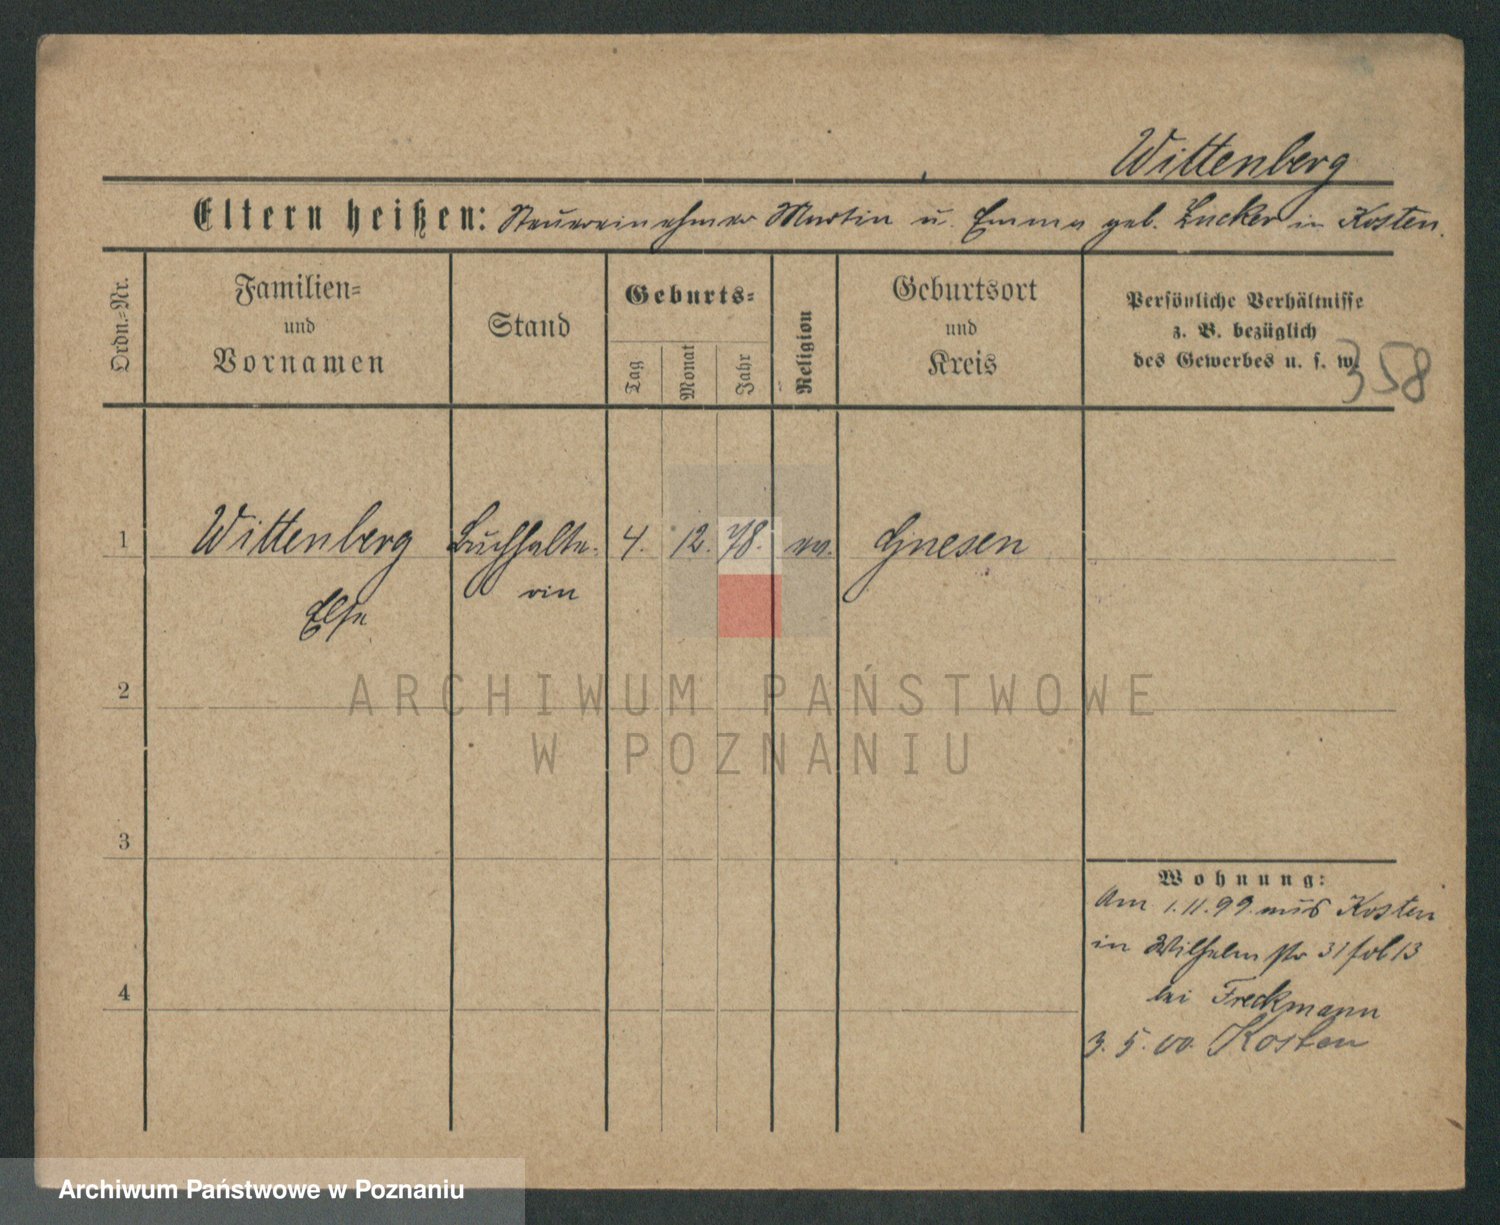 Wittenberg
Eltern heißen: Steuereinehmer Martin u. Emma geb. Lucker in Kosten.
Ordn.-Nr.
Familien-
und
Vornamen
Stand
Geburts-
Tag
Monat
Jahr
Religion
Geburtsort
und
Kreis
Persönliche Verhältnisse
z. B. bezüglich
des Gewerbes u. s. w.
358
1 Wittenberg Buchhalte- 4. 12. 78. ev. Gnesen
Else rin
2
ARCHIWUM PAŃSTWOWE
W POZNANIU
3
Wohnung:
Am 1.11.99 aus Kosten
in Wilhelmstr 31 fol 13
4
bei Freckmann
3. 5. 00. Kosten
Archiwum Państwowe w Poznaniu